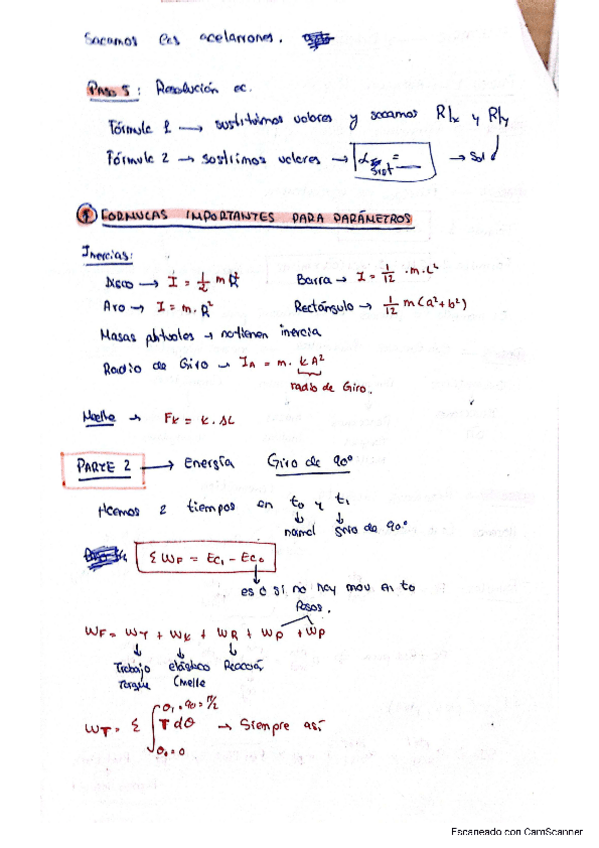 Sacamos las acelariones.
PASO 5: Resolución ec.
Fórmula 1 → sustituimos valores y sacamos R|x y R|y
Fórmula 2 → sustiimos valores → α sist = ___ → Sol
① FORMULAS IMPORTANTES PARA PARÁMETROS
Inercias:
Disco → I = 1/2 m R² Barra → I = 1/12 · m · L²
Aro → I = m · R² Rectángulo → 1/12 m (a² + b²)
Masas phtuales → no tienen inercia
Radio de Giro → I_A = m · k A²
radio de Giro.
Muelle → Fk = k · ΔL
PARTE 2 → Energía Giro de 90°
Hcemos 2 tiempos en t₀ y t₁
normal Giro de 90°
Σ WF = Ec₁ - Ec₀
es 0 si no hay mov en to
Pesos.
WF = WT + WK + WR + WP + WP
Trabajo elástico Reacción
Torque (melle
WT = Σ ∫ T dθ → Siempre así
θ₁ = 90 = π/2
θ₀ = 0
Escaneado con CamScanner